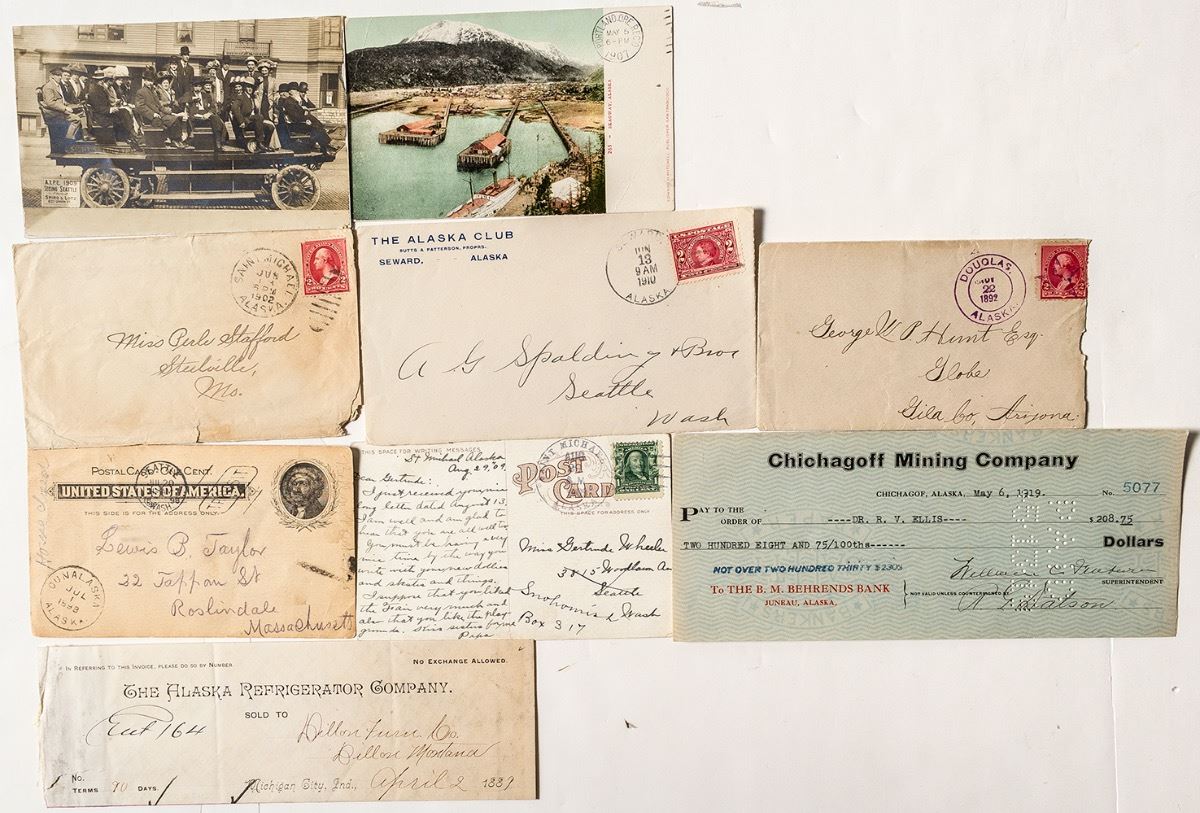 A.Y.P.E. 1909
SEEING SEATTLE
PORTLAND, ORE. REC'D
MAY 5
6-PM
1907
253 - SKAGWAY, ALASKA
SAINT MICHAEL
JUL
5 PM
1902
ALASKA.
Miss Perle Stafford
Steelville,
Mo.
THE ALASKA CLUB
BUTTS & PATTERSON, PROPRS.
SEWARD, - - ALASKA
SEWARD
JUN
13
9 AM
1910
ALASKA
U.S. POSTAGE
2 2
A G Spalding & Bros
Seattle
Wash
DOUGLAS,
22
1892
ALASKA
George W. P. Hunt Esq.
Globe
Gila Co, Arizona.
POSTAL CARD - ONE CENT.
UNITED STATES OF AMERICA.
THIS SIDE IS FOR THE ADDRESS ONLY.
Lewis B. Taylor
22 Tappan St
Roslindale
Massachusetts
OUNALASKA
JUL
1898
ALASKA
THIS SPACE FOR WRITING MESSAGES
St Michael Alaska
Aug. 29, 09
Dear Gertrude:
I just received your nice
long letter dated August 13,
I am well and am glad to
hear that you are all well too
You must be having a very
nice time by the way you
write with your new dollies
and skates and things.
I suppose that you liked
the Fair very much and
also that you like the Play
grounds.
Papa
POST
CARD
THIS SPACE FOR ADDRESS ONLY
Miss Gertrude Wheeler
3815 Woodlawn Av
Seattle
Snohomish Wash
Box 317
Chichagoff Mining Company
CHICHAGOF, ALASKA, May 6, 1919. No. 5077
PAY TO THE
ORDER OF ----DR. R. V. ELLIS---- $ 208.75
TWO HUNDRED EIGHT AND 75/100ths------ Dollars
NOT OVER TWO HUNDRED THIRTY $230$
To THE B. M. BEHRENDS BANK
JUNEAU, ALASKA,
SUPERINTENDENT
NOT VALID UNLESS COUNTERSIGNED BY
IN REFERRING TO THIS INVOICE, PLEASE DO SO BY NUMBER. NO EXCHANGE ALLOWED.
THE ALASKA REFRIGERATOR COMPANY.
164
SOLD TO Dillon Furn. Co.
Dillon Montana
No.
TERMS 90 DAYS. Michigan City, Ind., April 2 1889